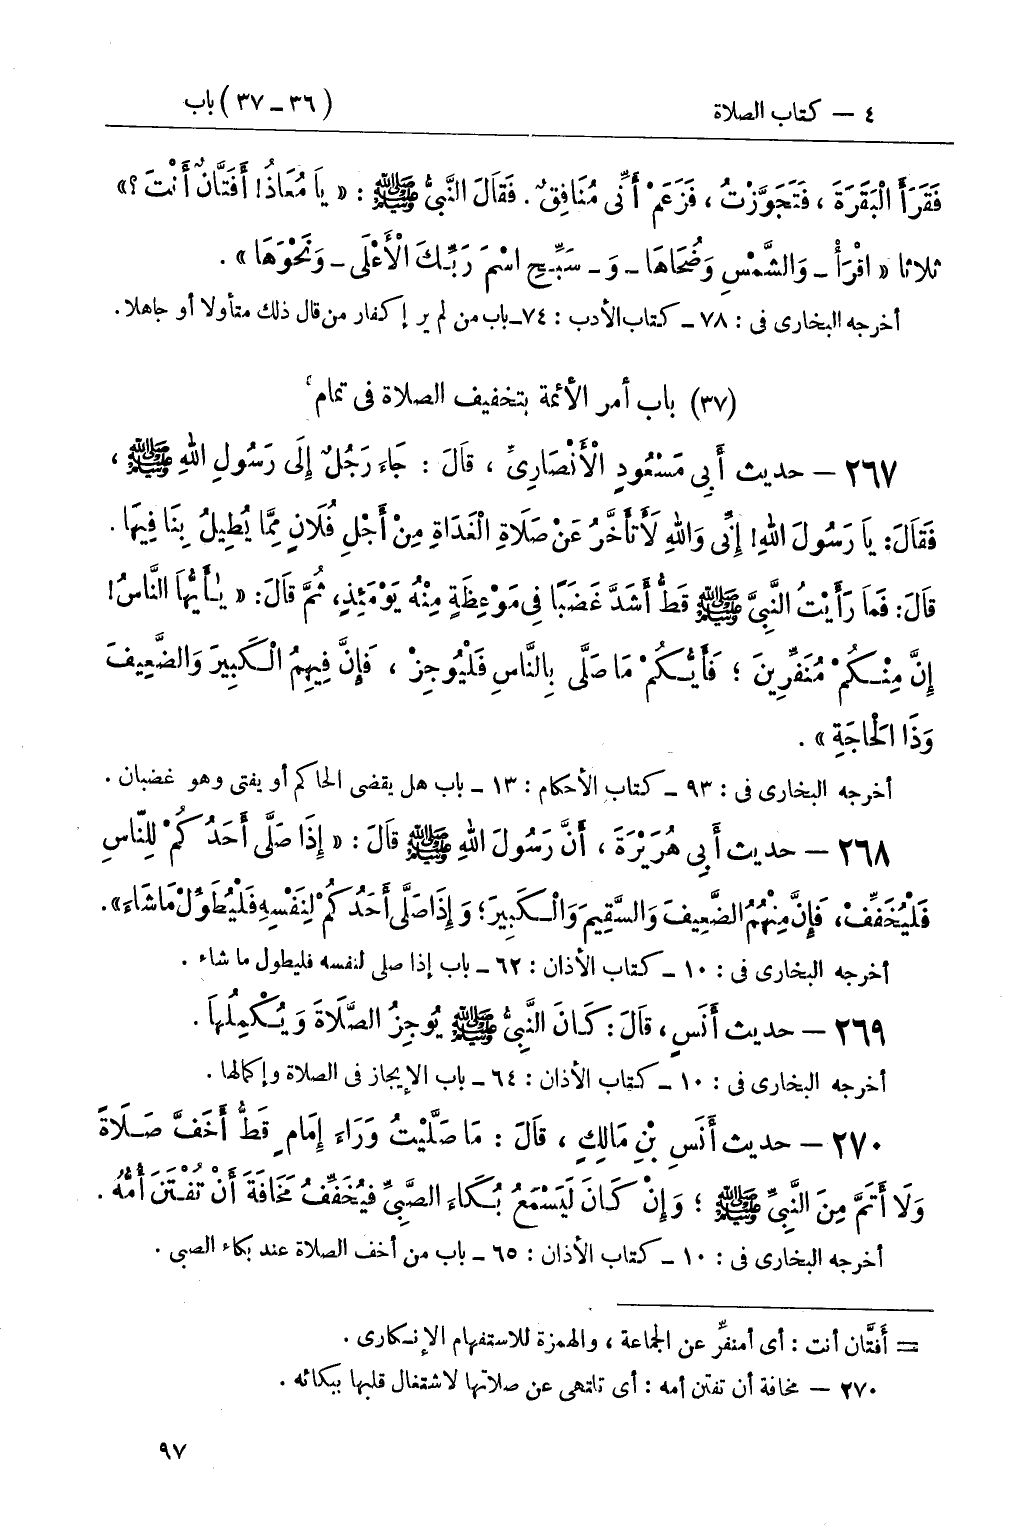 ٤ — كتاب الصلاة
(٣٦ – ٣٧) باب
فَقَرَأَ الْبَقَرَةَ ، فَتَجَوَّزْتُ ، فَزَعَمَ أَنِّى مُنَافِقٌ . فَقَالَ النَّبِىُّ ﷺ : « يَا مُعَاذُ! أَفَتَّانٌ أَنْتَ ؟»
ثلاثا « اقْرَأْ – وَالشَّمْسِ وَضُحَاهَا – وَ – سَبِّحِ اسْمَ رَبِّكَ الْأَعْلَى – وَنَحْوَهَا » .
أخرجه البخارى فى : ٧٨ – كتاب الأدب : ٧٤– باب من لم ير إكفار من قال ذلك متأولا أو جاهلا.
(٣٧) باب أمر الأئمة بتخفيف الصلاة فى تمام
٢٦٧ — حديث أَبِى مَسْعُودٍ الْأَنْصَارِىِّ ، قَالَ : جَاءَ رَجُلٌ إِلَى رَسُولِ اللهِ ﷺ ،
فَقَالَ: يَا رَسُولَ اللهِ! إِنِّى وَاللهِ لَأَتَأَخَّرُ عَنْ صَلَاةِ الْغَدَاةِ مِنْ أَجْلِ فُلَانٍ مِمَّا يُطِيلُ بِنَا فِيهَا .
قَالَ: فَمَا رَأَيْتُ النَّبِىَّ ﷺ قَطُّ أَشَدَّ غَضَبًا فِى مَوْعِظَةٍ مِنْهُ يَوْمَئِذٍ، ثُمَّ قَالَ: « يٰأَيُّهَا النَّاسُ!
إِنَّ مِنْكُمْ مُنَفِّرِينَ ؛ فَأَيُّكُمْ مَا صَلَّى بِالنَّاسِ فَلْيُوجِزْ ، فَإِنَّ فِيهِمُ الْكَبِيرَ وَالضَّعِيفَ
وَذَا الْحَاجَةِ » .
أخرجه البخارى فى : ٩٣ – كتاب الأحكام : ١٣ – باب هل يقضى الحاكم أو يفتى وهو غضبان .
٢٦٨ — حديث أَبِى هُرَيْرَةَ ، أَنَّ رَسُولَ اللهِ ﷺ قَالَ : « إِذَا صَلَّى أَحَدُكُمْ لِلنَّاسِ
فَلْيُخَفِّفْ، فَإِنَّ مِنْهُمُ الضَّعِيفَ وَالسَّقِيمَ وَالْكَبِيرَ؛ وَإِذَا صَلَّى أَحَدُكُمْ لِنَفْسِهِ فَلْيُطَوِّلْ مَا شَاءَ».
أخرجه البخارى فى : ١٠ – كتاب الأذان : ٦٢ – باب إذا صلى لنفسه فليطول ما شاء .
٢٦٩ — حديث أَنَسٍ ، قَالَ : كَانَ النَّبِىُّ ﷺ يُوجِزُ الصَّلَاةَ وَيُكْمِلُهَا .
أخرجه البخارى فى : ١٠ – كتاب الأذان : ٦٤ – باب الإيجاز فى الصلاة وإكمالها .
٢٧٠ — حديث أَنَسِ بْنِ مَالِكٍ ، قَالَ : مَا صَلَّيْتُ وَرَاءَ إِمَامٍ قَطُّ أَخَفَّ صَلَاةً
وَلَا أَتَمَّ مِنَ النَّبِىِّ ﷺ ؛ وَإِنْ كَانَ لَيَسْمَعُ بُكَاءَ الصَّبِىِّ فَيُخَفِّفُ مَخَافَةَ أَنْ تُفْتَنَ أُمُّهُ .
أخرجه البخارى فى : ١٠ – كتاب الأذان : ٦٥ – باب من أخف الصلاة عند بكاء الصبى .
= أَفتَّان أنت : أى أمنفرٌ عن الجماعة ، والهمزة للاستفهام الإنكارى .
٢٧٠ — مخافة أن تفتن أمه : أى تلتهى عن صلاتها لاشتغال قلبها ببكائه .
٩٧